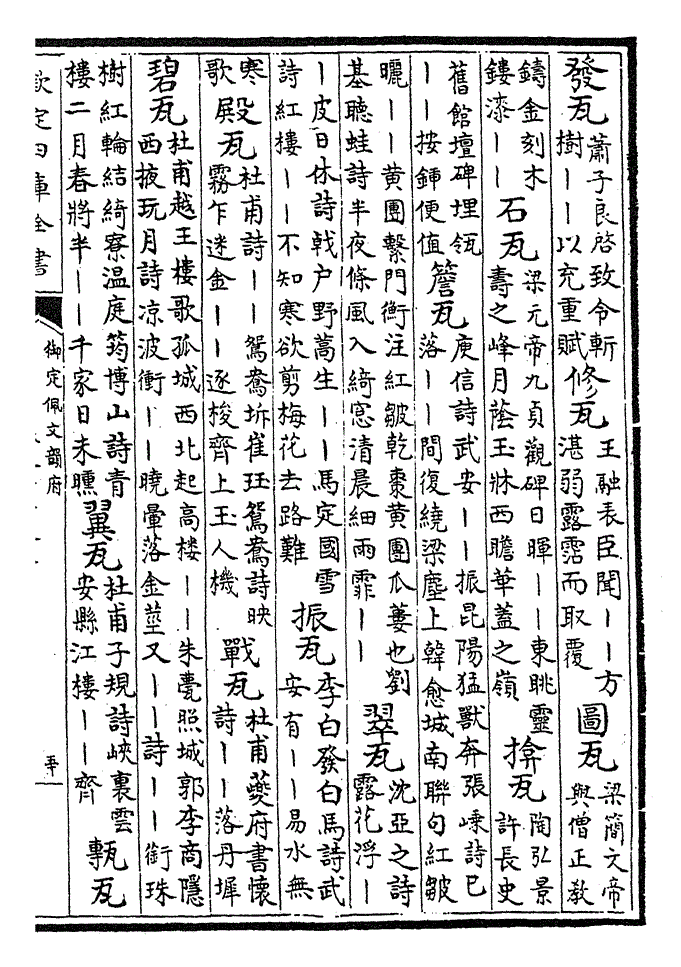 發瓦蕭子良啓致令斬樹丨丨以充重賦修瓦王融表臣聞丨丨方湛弱露霑而取覆圖瓦梁簡文帝與僧正教
鑄金刻木鏤漆丨丨石瓦梁元帝九貞觀碑日暉丨丨東眺靈壽之峰月蔭玉牀西瞻華蓋之嶺揜瓦陶弘景許長史
舊館壇碑埋瓴丨丨按鍾便值簷瓦庾信詩武安丨丨振昆陽猛獸奔張嵊詩已落丨丨間復繞梁塵上韓愈城南聯句紅皺
曬丨丨黄團繫門衡注紅皺乾棗黄團瓜蔞也劉基聽蛙詩半夜條風入綺窓清晨細雨霏丨丨翠瓦沈亞之詩露花浮丨
丨皮日休詩戟户野蒿生丨丨馬定國雪詩紅樓丨丨不知寒欲剪梅花去路難振瓦李白發白馬詩武安有丨丨易水無
寒歌殿瓦杜甫詩丨丨鴛鴦坼崔珏鴛鴦詩映霧乍迷金丨丨逐梭齊上玉人機戰瓦杜甫夔府書懷詩丨丨落丹墀
碧瓦杜甫越王樓歌孤城西北起高樓丨丨朱甍照城郭李商隱西掖玩月詩凉波衝丨丨曉暈落金莖又丨丨詩丨丨銜珠
樹紅輪結綺寮温庭筠博山詩青樓二月春將半丨丨千家日未曛翼瓦杜甫子規詩峽裏雲安縣江樓丨丨齊甎瓦
欽定四庫全書
御定佩文韻府